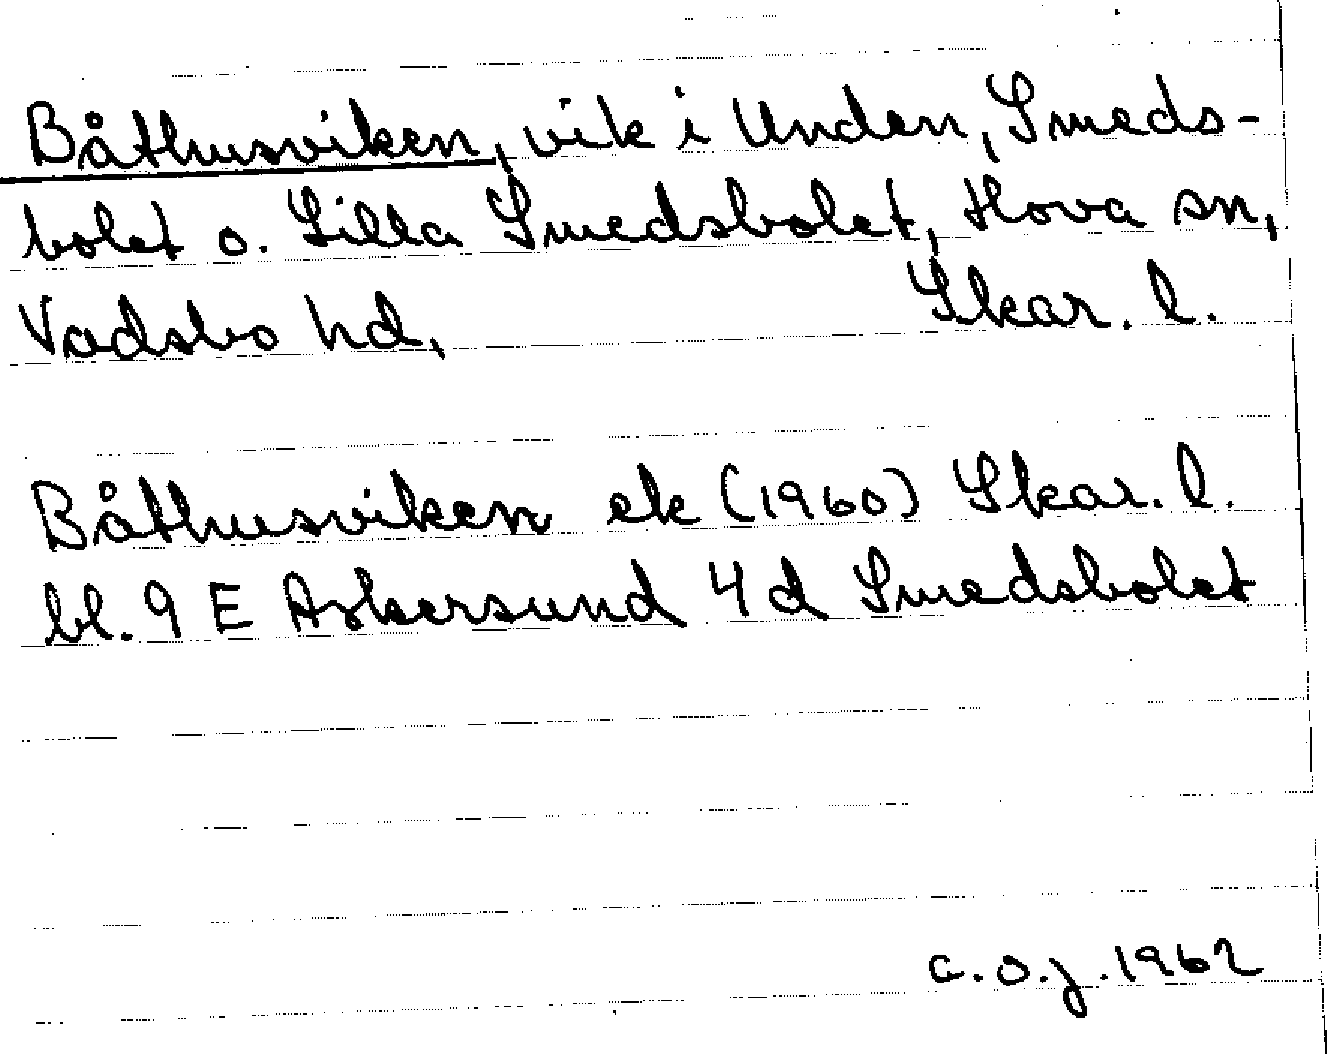 Båthusviken, vik i Unden, Smeds-
bolet o. Lilla Smedsbolet, Hova sn,
Vadsbo hd, Skar. l.
Båthusviken ek (1960) Skar. l.
bl. 9 E Askersund 4 d Smedsbolet
c.o.j. 1962